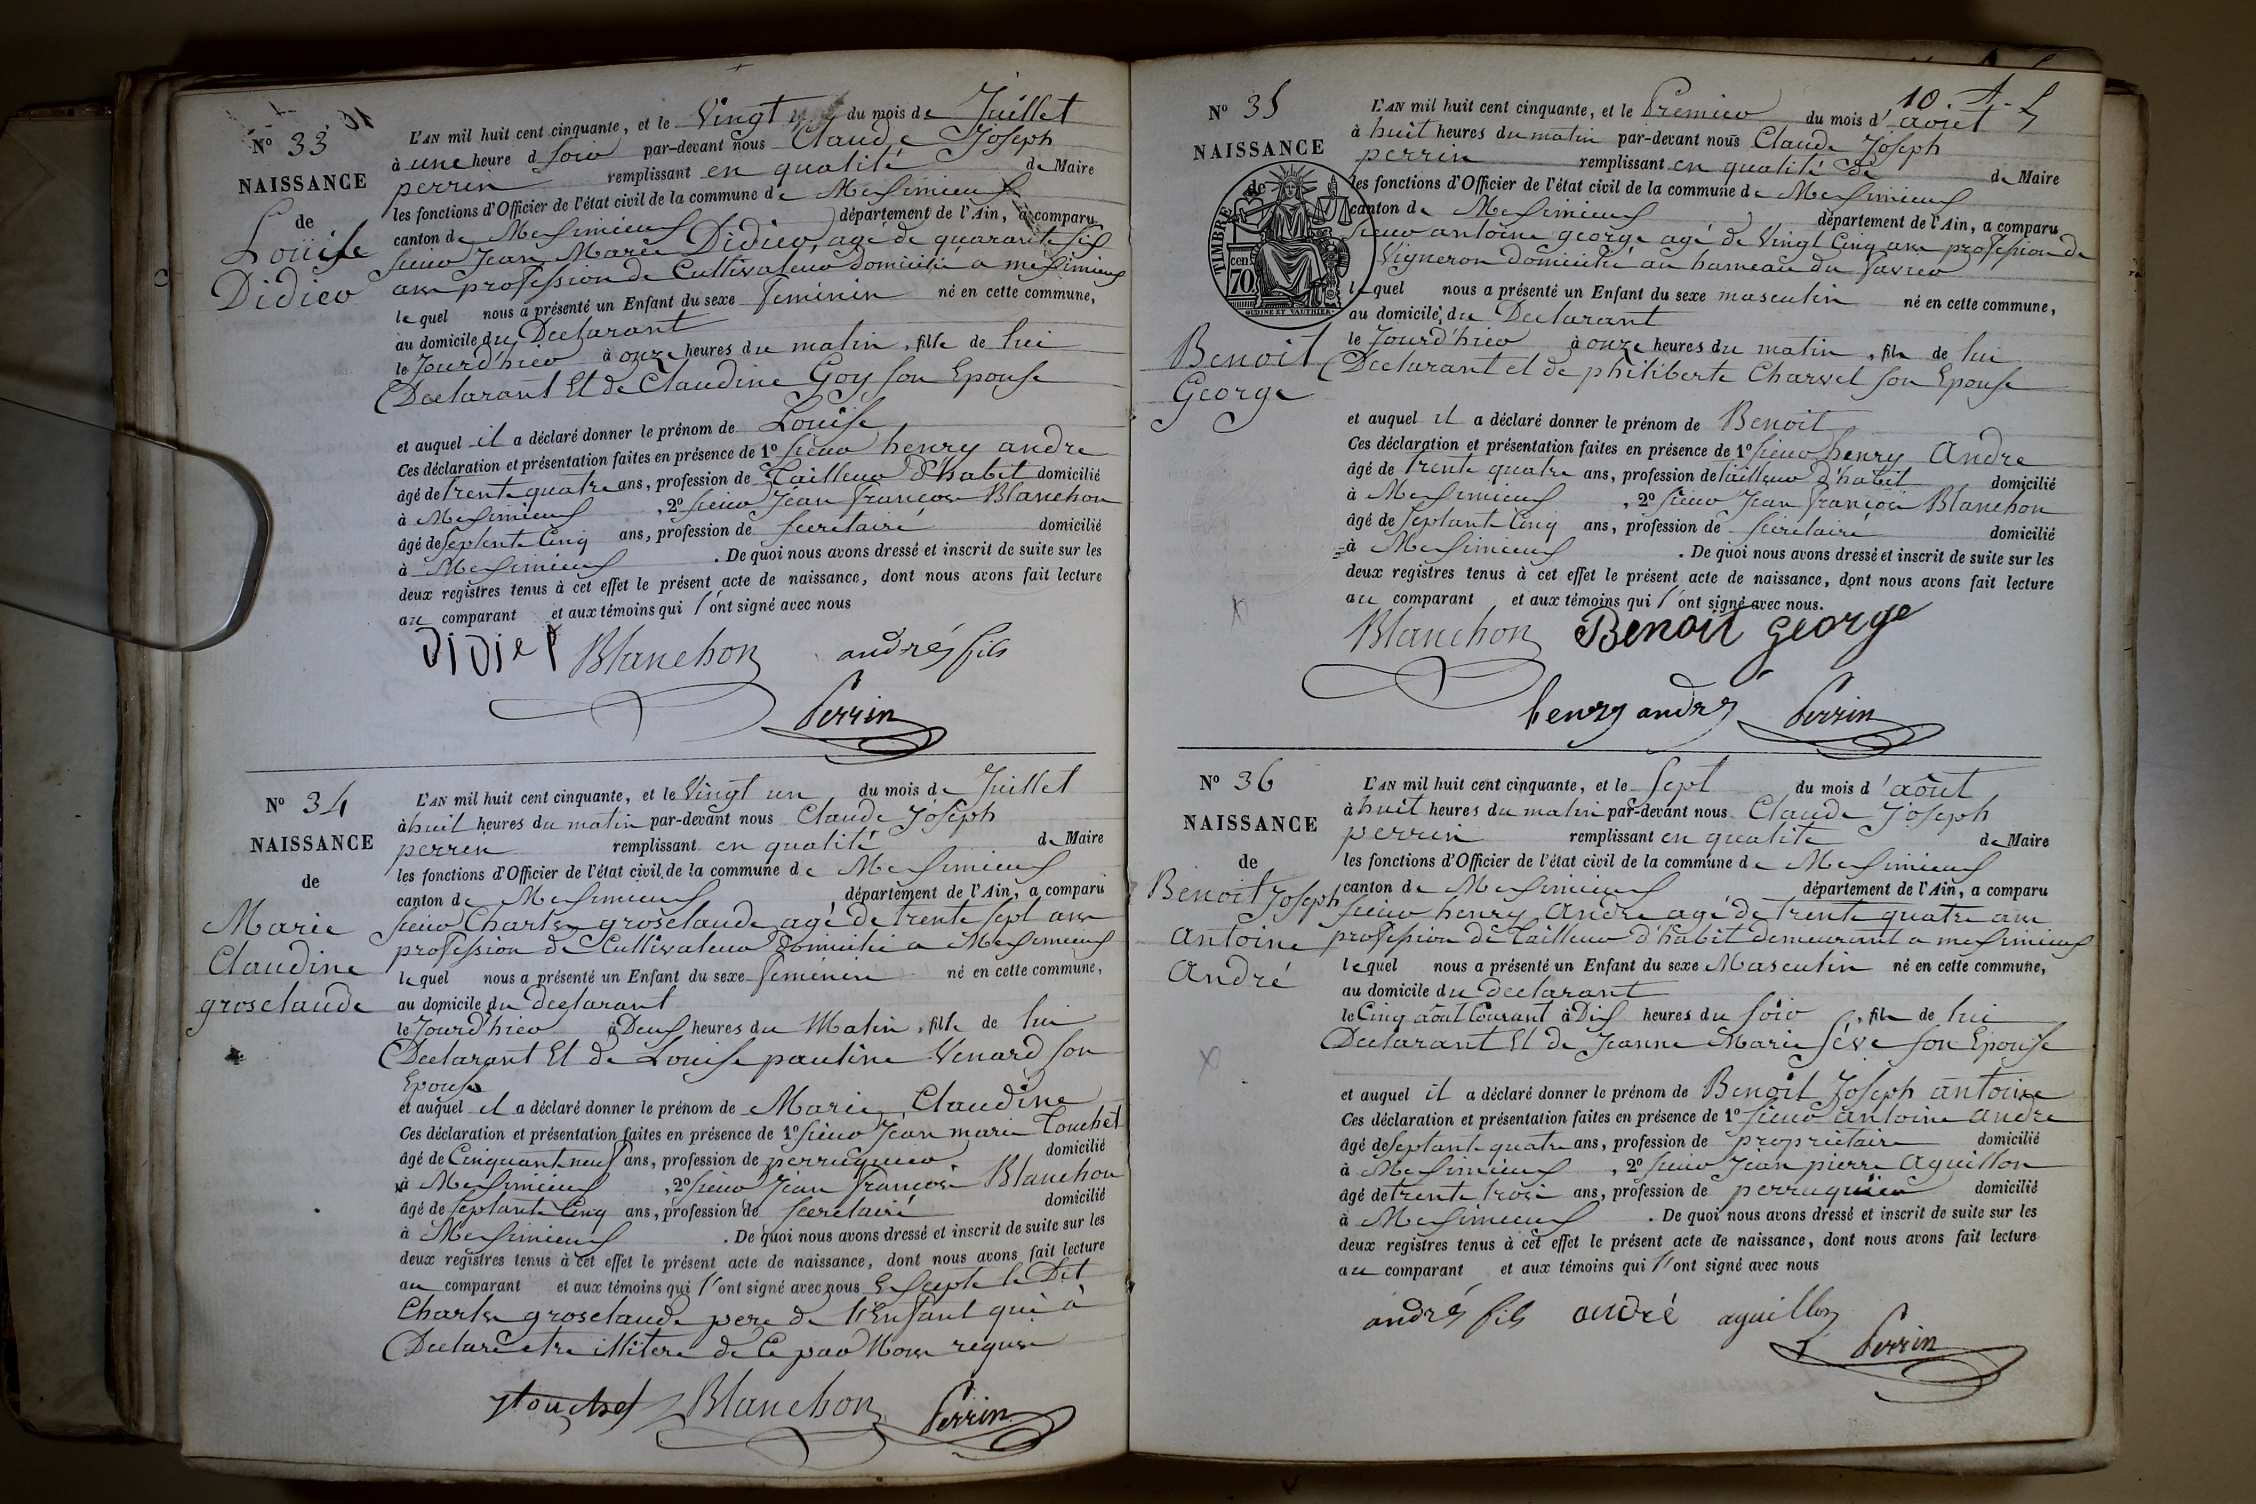 N° 33
NAISSANCE
de
Louise
Didier
L'AN mil huit cent cinquante, et le Vingt du mois de Juillet
à une heure d soir par-devant nous Claude Joseph
perrin remplissant en qualité de Maire
les fonctions d'Officier de l'état civil de la commune de Messimieux
canton de Messimieux département de l'Ain, a comparu
sieur Jean Marie Didier, agé de quarante six
ans profession de Cultivateur domicilié a messimieux
lequel nous a présenté un Enfant du sexe feminin né en cette commune,
au domicile du Declarant
le Jourd'hier à onze heures du matin, fille de lui
Declarant Et de Claudine Goy son Epouse
et auquel il a déclaré donner le prénom de Louise
Ces déclaration et présentation faites en présence de 1° sieur henry andre
âgé de trente quatre ans, profession de Tailleur d'habit domicilié
à Messimieux, 2° sieur Jean francois Blanchon
âgé de septente Cinq ans, profession de secretaire domicilié
à Messimieux. De quoi nous avons dressé et inscrit de suite sur les
deux registres tenus à cet effet le présent acte de naissance, dont nous avons fait lecture
au comparant et aux témoins qui l'ont signé avec nous
DiDier Blanchon andré fils
Perrin
N° 34
NAISSANCE
de
Marie
Claudine
grosclaude
L'AN mil huit cent cinquante, et le Vingt un du mois de Juillet
à huit heures du matin par-devant nous Claude Joseph
perrin remplissant en qualité de Maire
les fonctions d'Officier de l'état civil de la commune de Messimieux
canton de Messimieux département de l'Ain, a comparu
sieur Charles grosclaude agé de trente sept ans
profession de Cultivateur domicilié a Messimieux
lequel nous a présenté un Enfant du sexe feminin né en cette commune,
au domicile du declarant
le Jourd'hier à Deux heures du Matin, fille de lui
Declarant Et de Louise pauline Venard son
Epouse
et auquel il a déclaré donner le prénom de Marie Claudine
Ces déclaration et présentation faites en présence de 1° sieur Jean marie Touchet
âgé de Cinquant neuf ans, profession de perruquier domicilié
à Messimieux, 2° sieur Jean francois Blanchon
âgé de septante Cinq ans, profession de secretaire domicilié
à Messimieux. De quoi nous avons dressé et inscrit de suite sur les
deux registres tenus à cet effet le présent acte de naissance, dont nous avons fait lecture
au comparant et aux témoins qui l'ont signé avec nous Excepte le Dit
Charles grosclaude pere de l'Enfant qui à
Declaré etre illitere de Ce par Nous requis
touchet Blanchon Perrin
10.
N° 35
NAISSANCE
de
TIMBRE
70 cen
OUDINÉ ET VAUTHIER
Benoit
George
L'AN mil huit cent cinquante, et le Premier du mois d'aout
à huit heures du matin par-devant nous Claude Joseph
perrin remplissant en qualité de de Maire
les fonctions d'Officier de l'état civil de la commune de Messimieux
canton de Messimieux département de l'Ain, a comparu
sieur antoine george agé de Vingt Cinq ans profession de
Vigneron domicilié au hameau du
lequel nous a présenté un Enfant du sexe masculin né en cette commune,
au domicile du Declarant
le Jourd'hier à onze heures du matin, fils de lui
Declarant et de philiberte Charvet son Epouse
et auquel il a déclaré donner le prénom de Benoit
Ces déclaration et présentation faites en présence de 1° sieur henry Andre
âgé de trente quatre ans, profession de tailleur d'habit domicilié
à Messimieux, 2° sieur Jean françois Blanchon
âgé de septante Cinq ans, profession de secretaire domicilié
à Messimieux. De quoi nous avons dressé et inscrit de suite sur les
deux registres tenus à cet effet le présent acte de naissance, dont nous avons fait lecture
au comparant et aux témoins qui l'ont signé avec nous.
Blanchon Benoit George
henry andré Perrin
N° 36
NAISSANCE
de
Benoit Joseph
antoine
André
L'AN mil huit cent cinquante, et le sept du mois d'août
à huit heures du matin par-devant nous Claude Joseph
perrin remplissant en qualité de Maire
les fonctions d'Officier de l'état civil de la commune de Messimieux
canton de Messimieux département de l'Ain, a comparu
sieur henry Andre agé de trente quatre ans
profession de tailleur d'habit demeurant a messimieux
lequel nous a présenté un Enfant du sexe Masculin né en cette commune,
au domicile du declarant
le Cinq aout Courant à Dix heures du soir, fils de lui
Declarant Et de Jeanne Marie Séve son Epouse
et auquel il a déclaré donner le prénom de Benoit Joseph antoine
Ces déclaration et présentation faites en présence de 1° sieur antoine andre
âgé de septant quatre ans, profession de proprietaire domicilié
à Messimieux, 2° sieur Jean pierre Aguillon
âgé de trente trois ans, profession de perruquier domicilié
à Messimieux. De quoi nous avons dressé et inscrit de suite sur les
deux registres tenus à cet effet le présent acte de naissance, dont nous avons fait lecture
au comparant et aux témoins qui l'ont signé avec nous
andré fils andré aguillon
Perrin